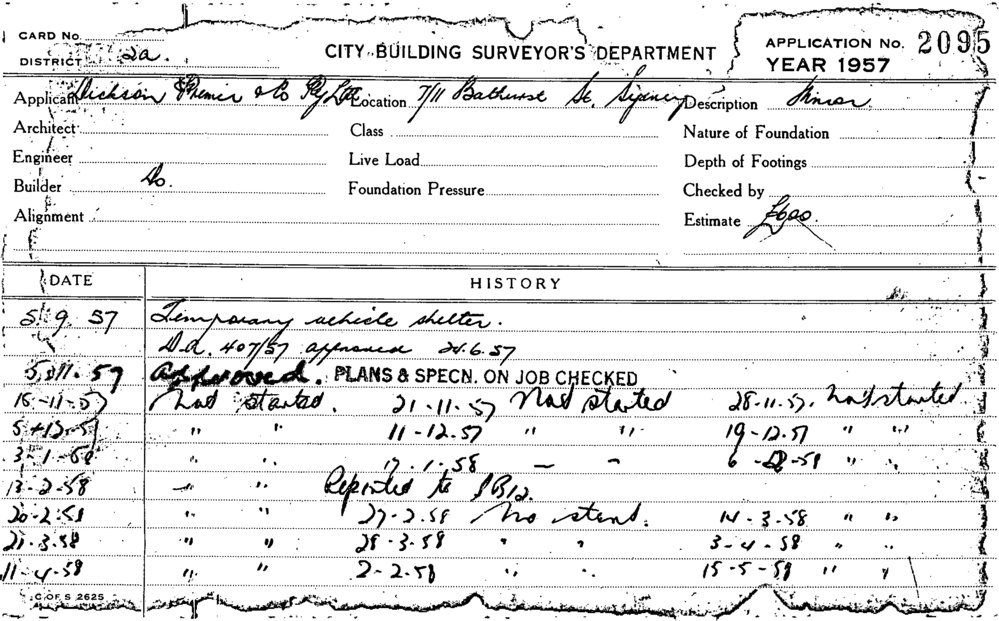 CARD No.
DISTRICT 2a.
CITY BUILDING SURVEYOR'S DEPARTMENT
APPLICATION No. 2095
YEAR 1957
Applicant Dickson Primer & Co Pty Ltd Location 7/11 Bathurst St. Sydney Description Minor
Architect Class Nature of Foundation
Engineer Live Load Depth of Footings
Builder Do. Foundation Pressure Checked by
Alignment Estimate
DATE HISTORY
5.9.57 Temporary vehicle shelter.
D.A. 407/57 approved 24.6.57
5.11.57 Approved. PLANS & SPECN. ON JOB CHECKED
15-11-57 Not started. 21-11-57 Not started 28-11-57. Not started
5-12-57 " " 11-12-57 " " 19-12-57 " "
3-1-58 " " 17-1-58 — " 6-2-58 " "
13-2-58 — " Reported to
20-2-58 " " 27-2-58 No start. 14-3-58 " "
21-3-58 " " 28-3-58 " " 3-4-58 " "
11-4-58 " " 2-2-58 " " 15-5-58 " "
C. OF S. 2625